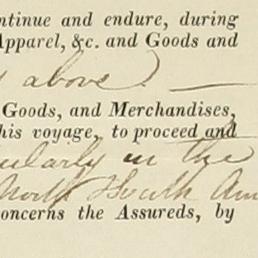 ntinue and endure, during
Apparel, &c. and Goods and
above. —
Goods, and Merchandises,
his voyage, to proceed and
ularly in the
North & South Am
oncerns the Assureds, by